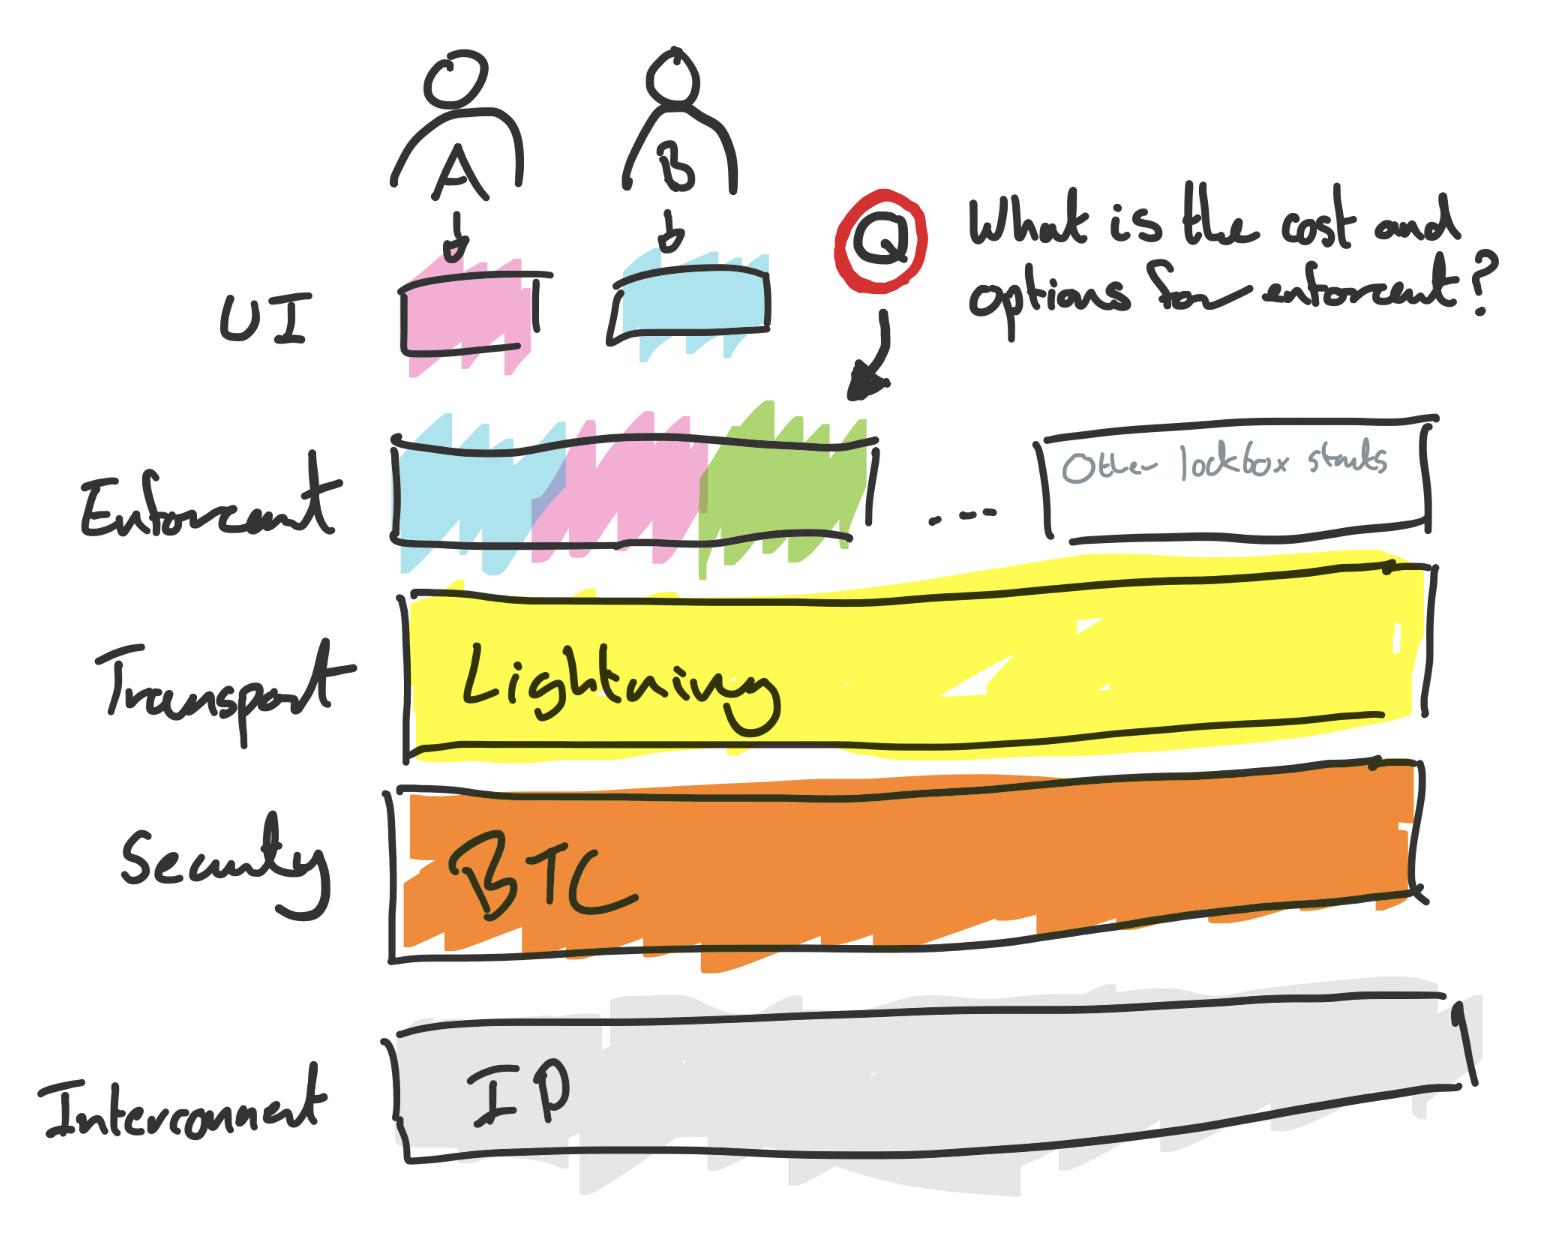 A
B
Q
What is the cost and
options for enforcent?
UI
Enforcent
Other lockbox starts
Transport
Lightning
Security
BTC
Interconnect
IP